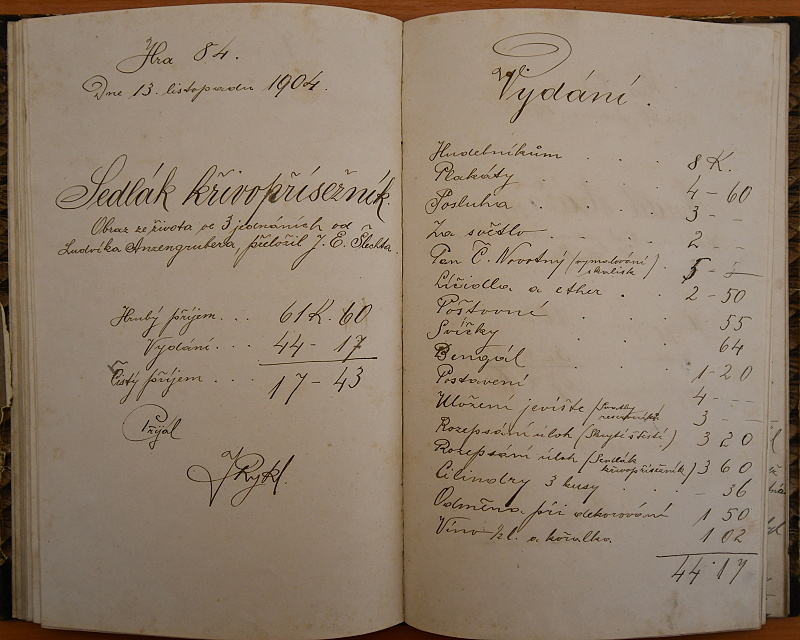 Hra 84.
Dne 13. listopadu 1904.
Sedlák křivopřísežník.
Obraz ze života ve 3 jednáních od
Ludvíka Anzengrubera, přeložil J. E. Šlechta.
Hrubý příjem . . . 61 K. 60
Vydání . . . 44 - 17
Čistý příjem . . . 17 - 43
Přijal
JRykl.
Vydání.
Hudebníkům . . . 8 K.
Plakáty . . . 4 - 60
Posluha . . . 3 - -
Za světlo . . . 2 - -
Pan Č. Novotný (vymalování skalisk) . 5 - -
Líčidla a ether . . 2 - 50
Poštovní . . . 55
Svíčky . . . 64
Bengál . . . 1 - 20
Postavení . . . 4 - -
Uložení jeviště 3 - -
Rozepsání úloh (Skryté štěstí) 3 20
Rozepsání úloh (Sedlák křivopřísežník) 3 60
Cilindry 3 kusy . . - 36
Odměna při dekorování 1 50
Víno ½ l. a kořalka 1 02
44 · 17